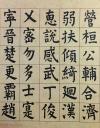 營桓公輔合濟
弱扶傾綺迴漢
惠說感武丁俊
乂密勿多士寔
寧晉楚更霸趙